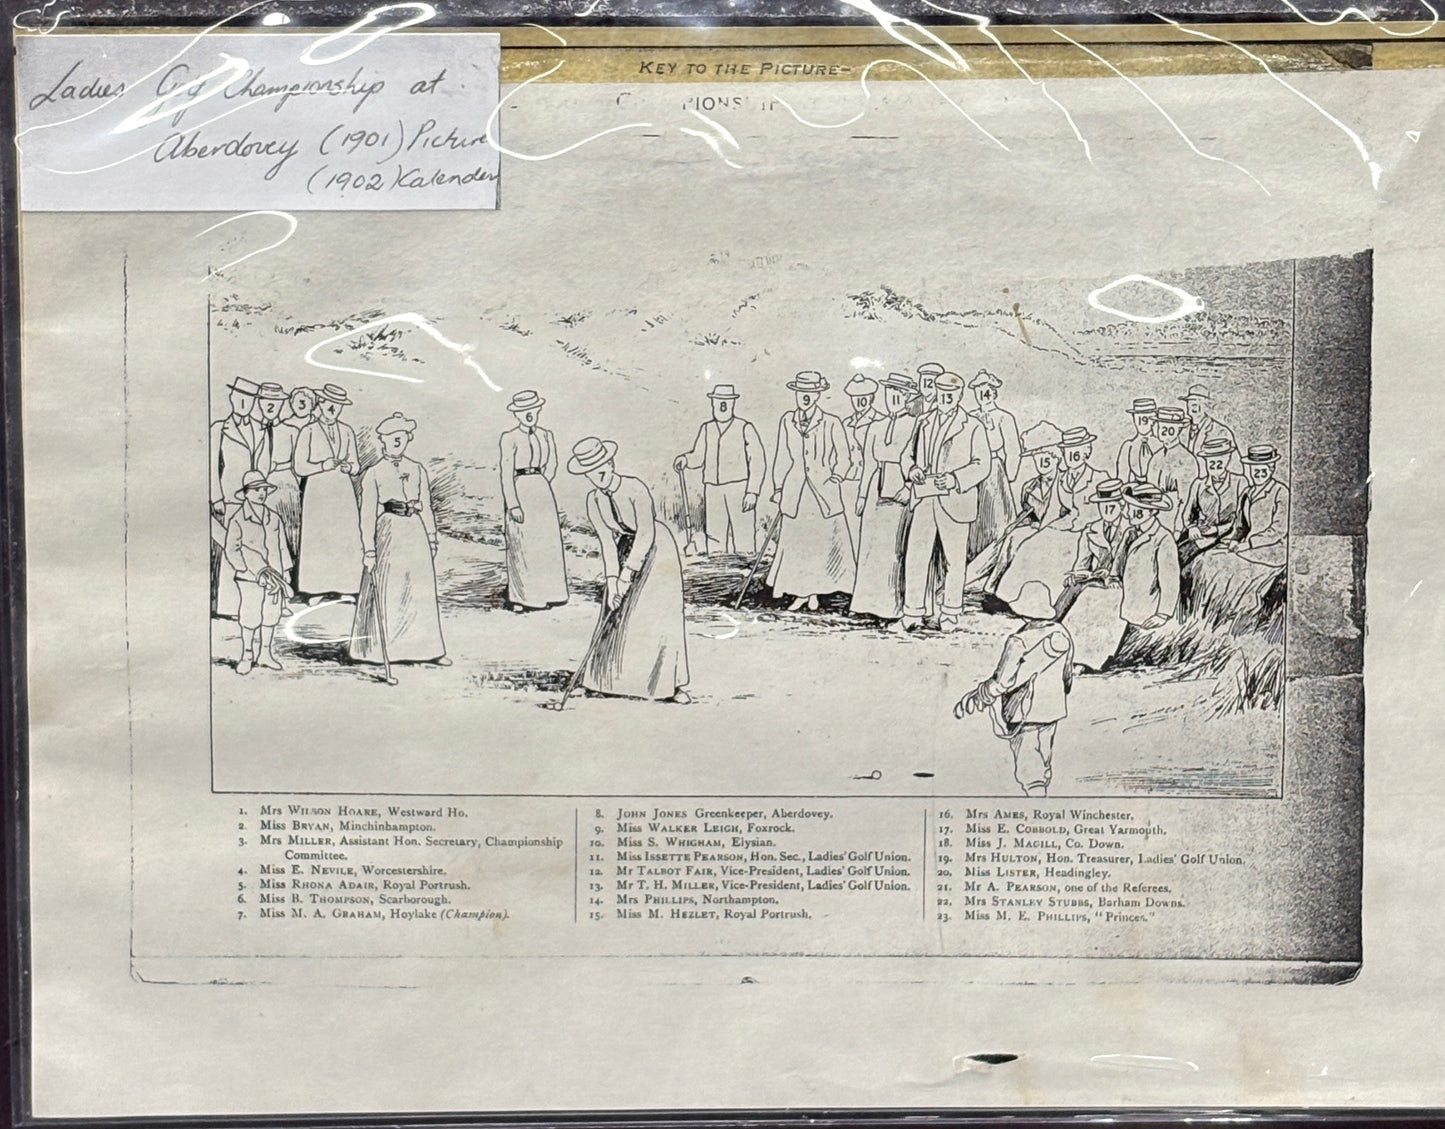 Ladies Golf Championship at
Aberdovey (1901) Picture
(1902) Kalender
KEY TO THE PICTURE—
1. Mrs WILSON HOARE, Westward Ho.
2. Miss BRYAN, Minchinhampton.
3. Mrs MILLER, Assistant Hon. Secretary, Championship
Committee.
4. Miss E. NEVILE, Worcestershire.
5. Miss RHONA ADAIR, Royal Portrush.
6. Miss B. THOMPSON, Scarborough.
7. Miss M. A. GRAHAM, Hoylake (Champion).
8. JOHN JONES Greenkeeper, Aberdovey.
9. Miss WALKER LEIGH, Foxrock.
10. Miss S. WHIGHAM, Elysian.
11. Miss ISSETTE PEARSON, Hon. Sec., Ladies' Golf Union.
12. Mr TALBOT FAIR, Vice-President, Ladies' Golf Union.
13. Mr T. H. MILLER, Vice-President, Ladies' Golf Union.
14. Mrs PHILLIPS, Northampton.
15. Miss M. HEZLET, Royal Portrush.
16. Mrs AMES, Royal Winchester.
17. Miss E. COBBOLD, Great Yarmouth.
18. Miss J. MAGILL, Co. Down.
19. Mrs HULTON, Hon. Treasurer, Ladies' Golf Union.
20. Miss LISTER, Headingley.
21. Mr A. PEARSON, one of the Referees.
22. Mrs STANLEY STUBBS, Barham Downs.
23. Miss M. E. PHILLIPS, "Princes."